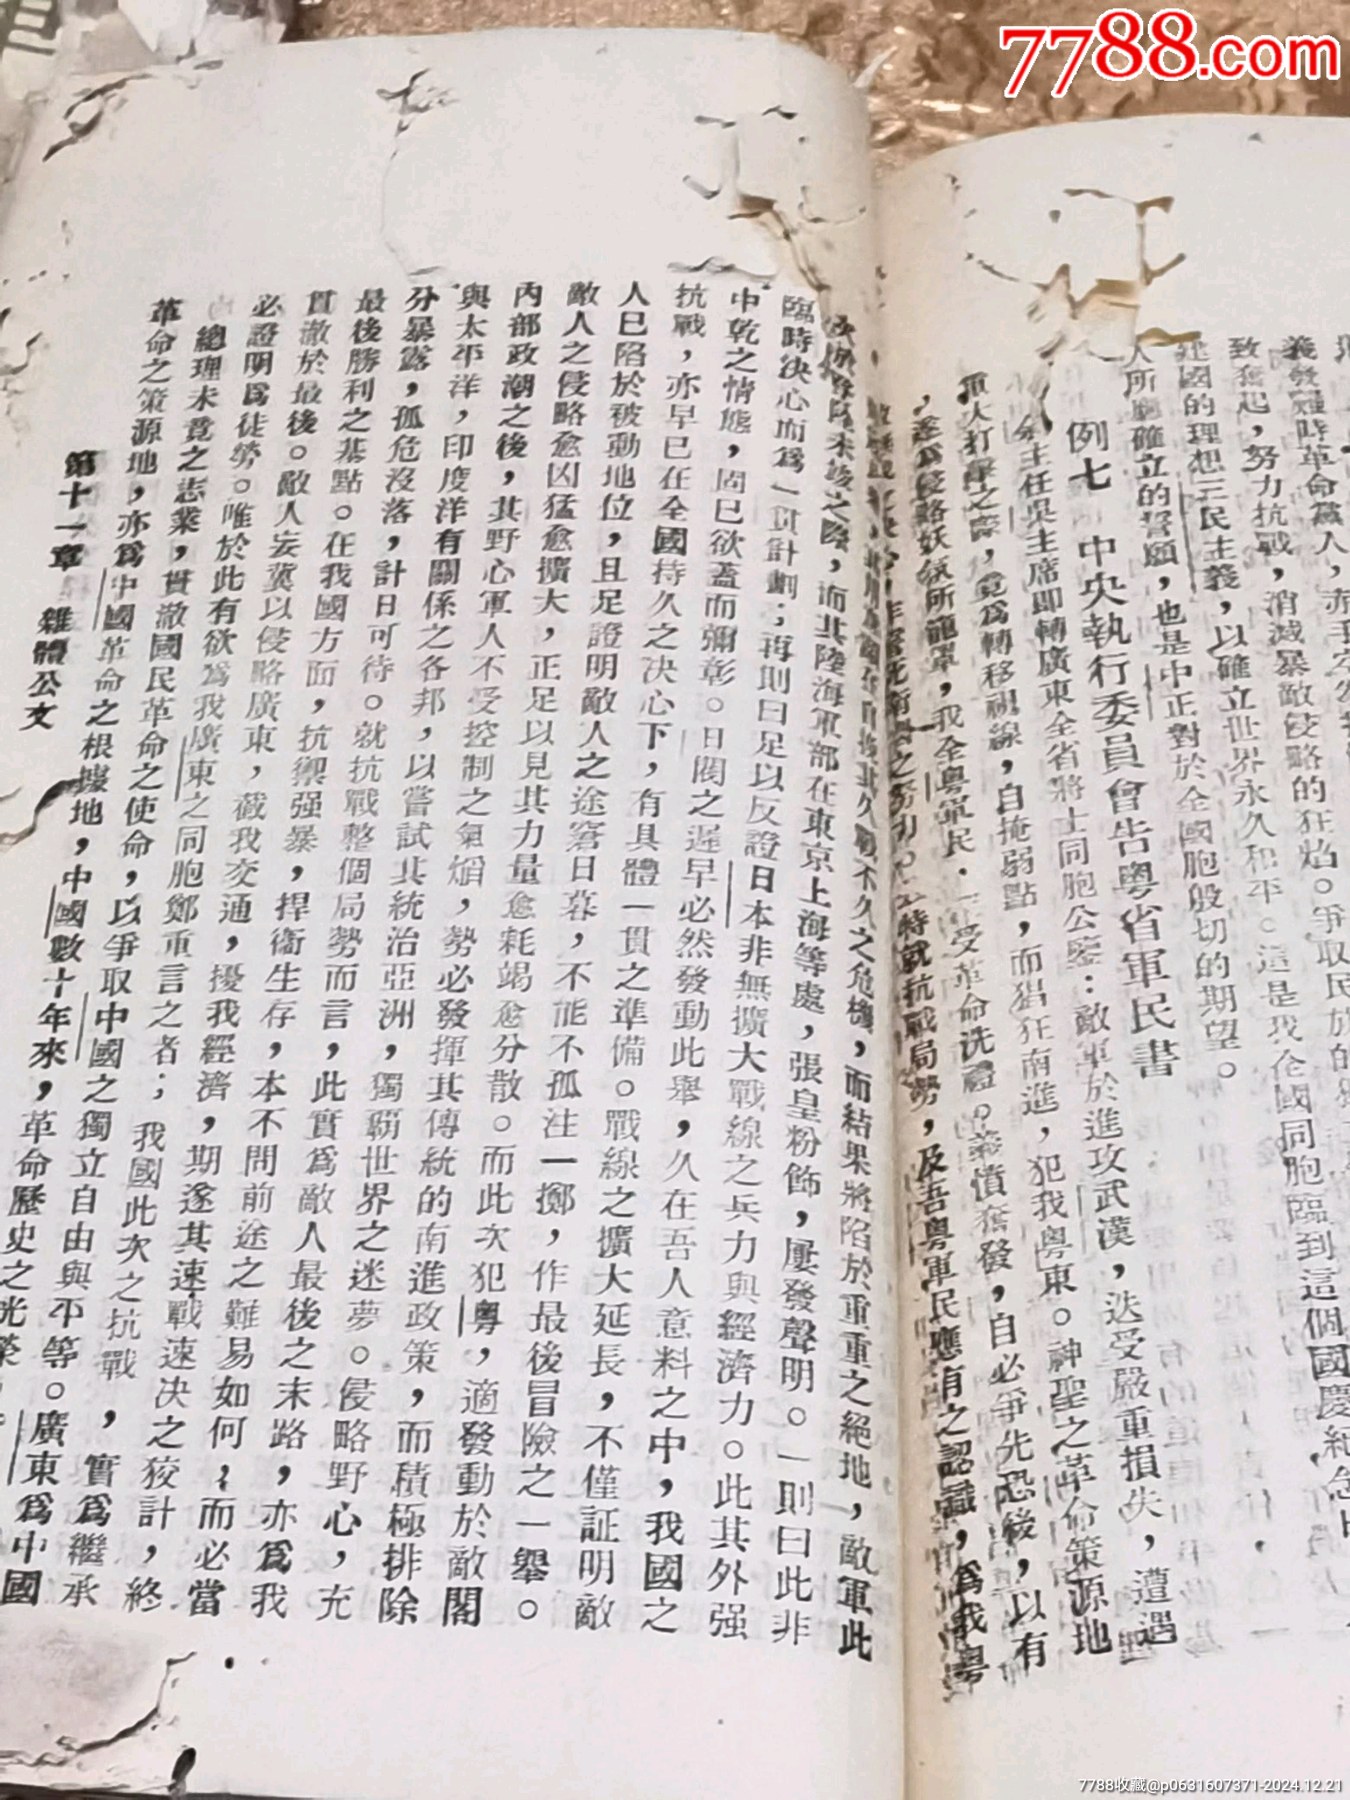 7788.com
義發難時革命黨人，
致奮起，努力抗戰，消滅暴敵侵略的狂焰。爭取民
建國的理想三民主義，以確立世界永久和平。這是我全國同胞臨到這個國慶紀念
人所確立的誓願，也是中正對於全國胞般切的期望。
例七　中央執行委員會告粵省軍民書
余主任吳主席即轉廣東全省將士同胞公鑒：敵軍於進攻武漢，迭受嚴重損失，遭遇
重大打擊之際，竟爲轉移視線，自掩弱點，而猖狂南進，犯我粵東。神聖之革命策源地
，遂爲侵略妖氛所籠罩，我全粵軍民，受革命洗禮。義憤奮發，自必爭先恐後，以有
特就抗戰局勢，及吾粵軍民應有之認識，爲我粵
之危機，而結果將陷於重重之絕地，敵軍此
之際，而其陸海軍部在東京上海等處，張皇粉飾，屢發聲明。一則曰此非
臨時決心而爲一貫計劃；再則曰足以反證日本非無擴大戰線之兵力與經濟力。此其外强
中乾之情態，固已欲蓋而彌彰。日閥之遲早必然發動此舉，久在吾人意料之中，我國之
抗戰，亦早已在全國持久之決心下，有具體一貫之準備。戰線之擴大延長，不僅証明敵
人已陷於被動地位，且足證明敵人之途窘日暮，不能不孤注一擲，作最後冒險之一舉。
敵人之侵略愈凶猛愈擴大，正足以見其力量愈耗竭愈分散。而此次犯粵，適發動於敵閣
內部政潮之後，其野心軍人不受控制之氣熖，勢必發揮其傳統的南進政策，而積極排除
與太平洋，印度洋有關係之各邦，以嘗試其統治亞洲，獨覇世界之迷夢。侵略野心，充
分暴露，孤危沒落，計日可待。就抗戰整個局勢而言，此實爲敵人最後之末路，亦爲我
最後勝利之基點。在我國方面，抗禦强暴，捍衞生存，本不問前途之難易如何，而必當
貫澈於最後。敵人妄冀以侵略廣東，截我交通，擾我經濟，期遂其速戰速決之狡計，終
必證明爲徒勞。唯於此有欲爲我廣東之同胞鄭重言之者；我國此次之抗戰，實爲繼承
總理未竟之志業，貫澈國民革命之使命，以爭取中國之獨立自由與平等。廣東爲中國
革命之策源地，亦爲中國革命之根據地，中國數十年來，革命歷史之光榮
第十一章　雜體公文
7788收藏@p0631607371-2024.12.21